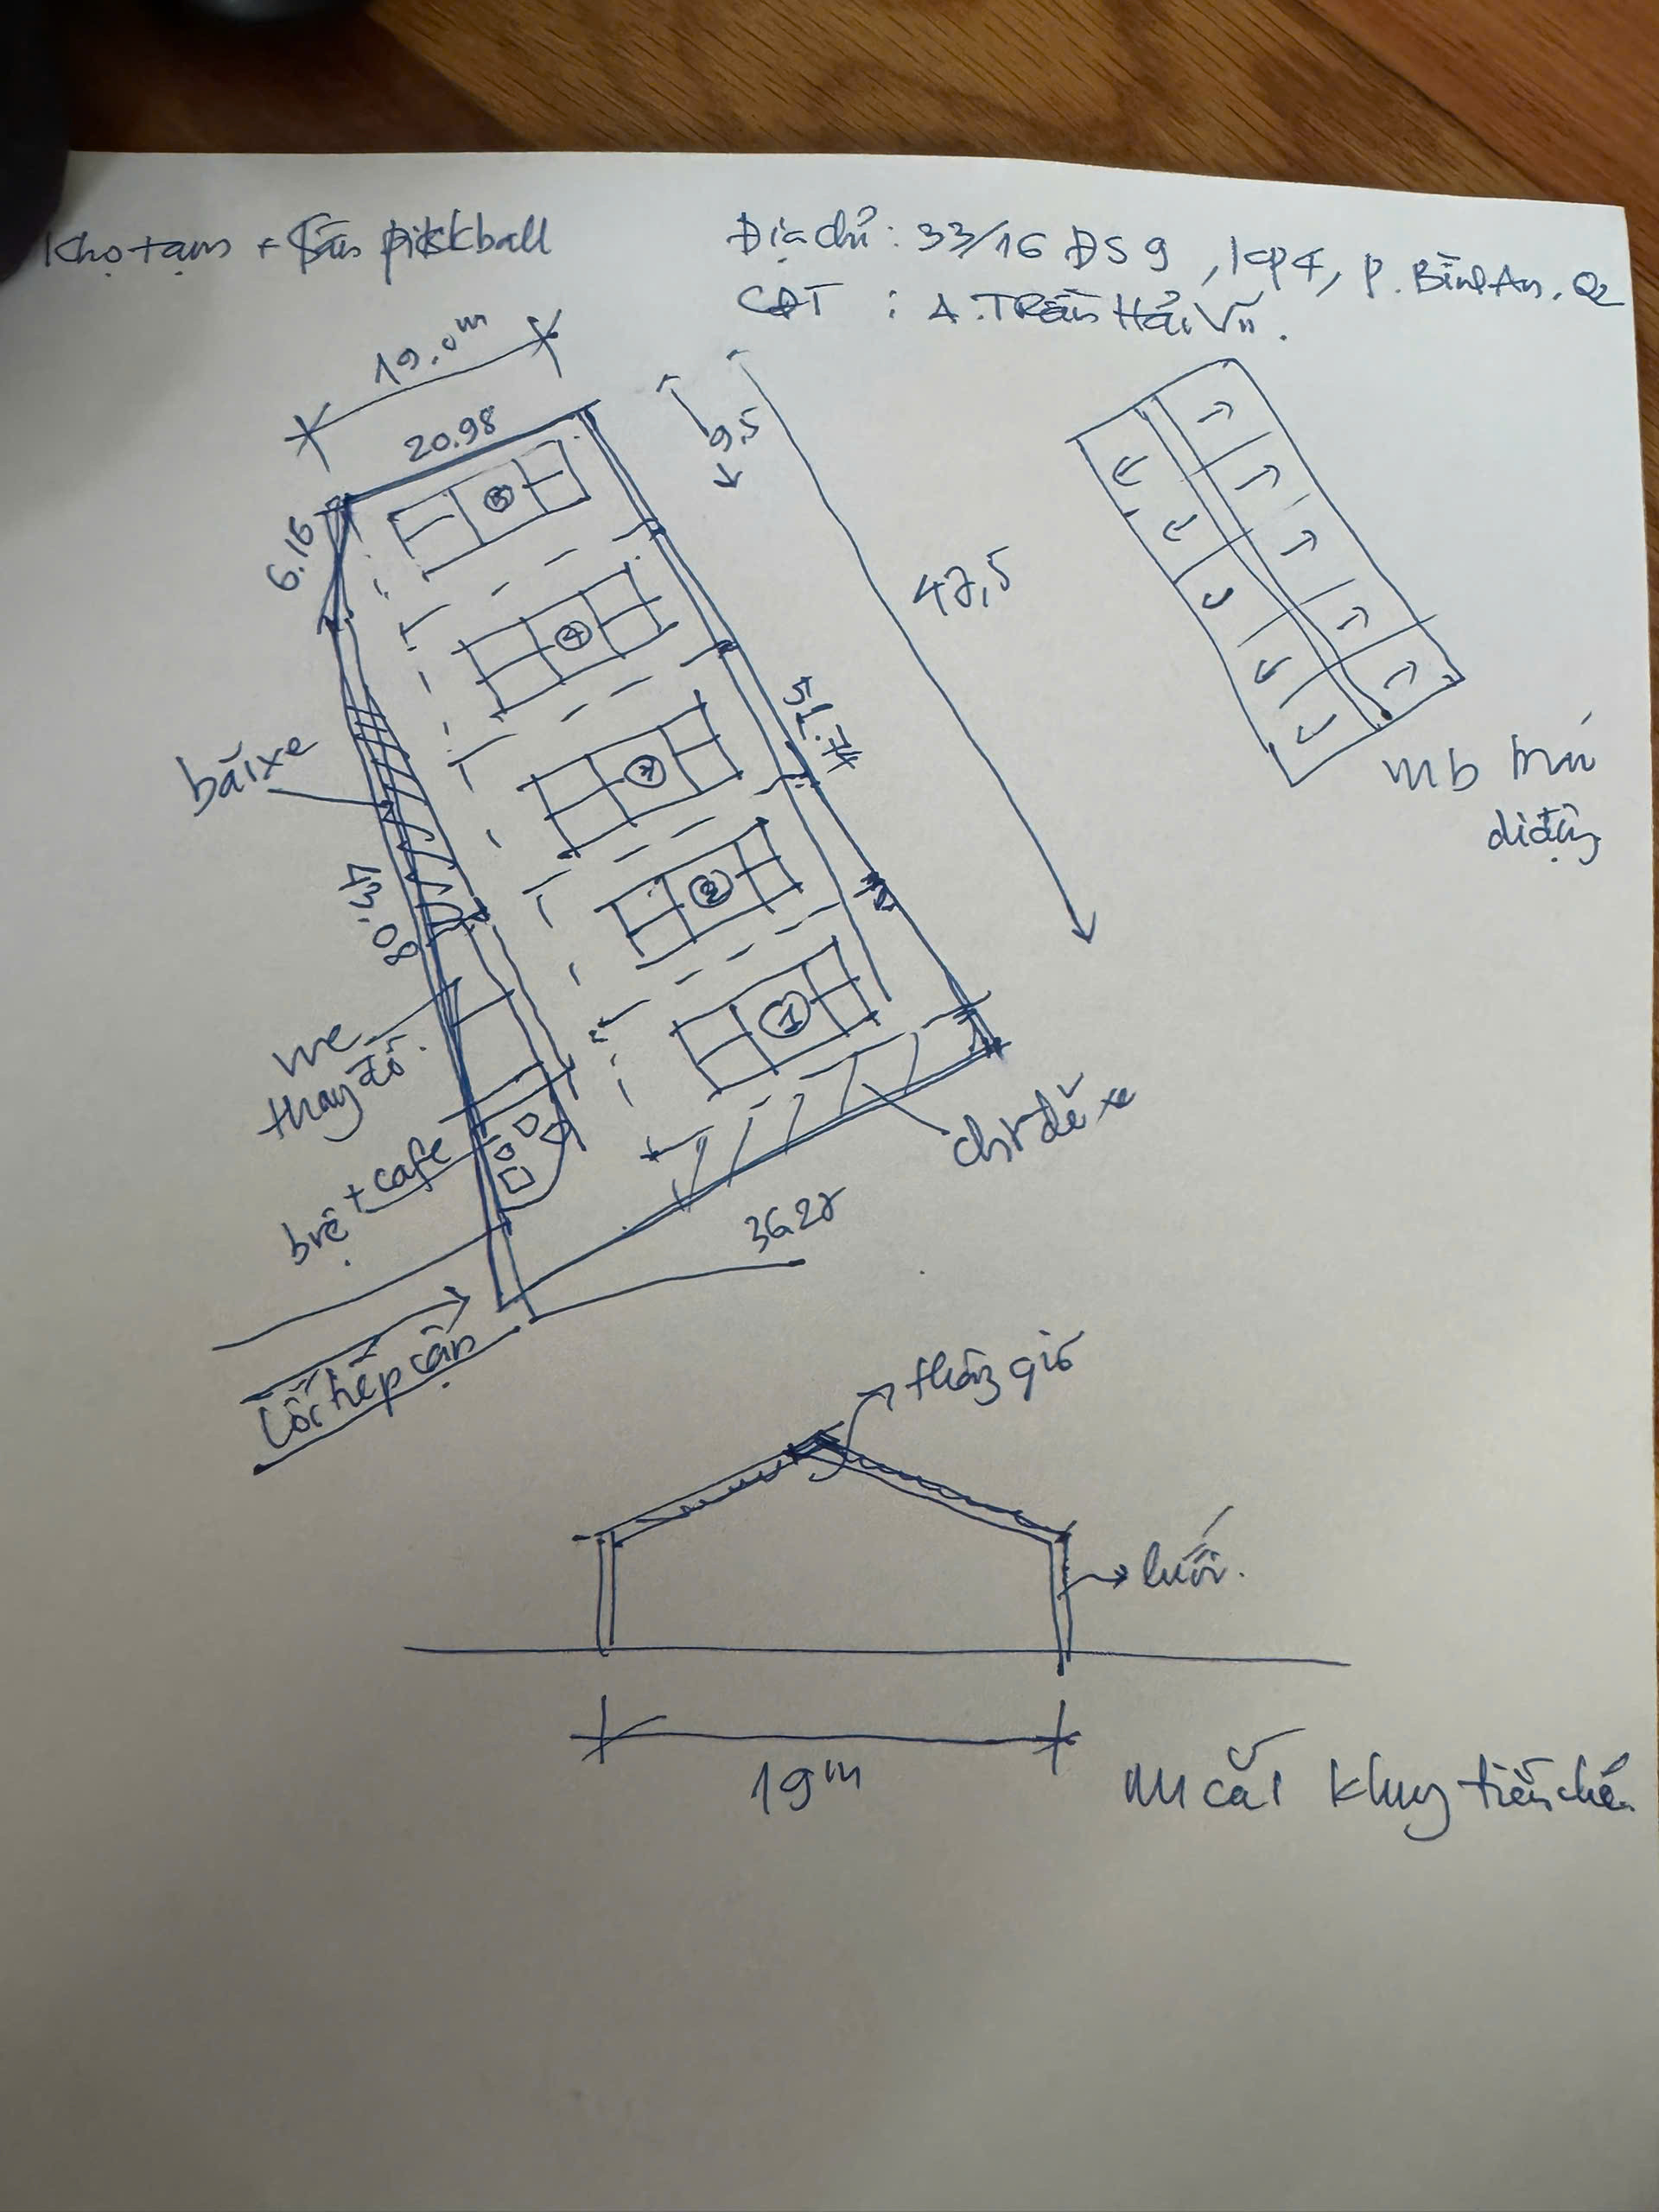 Kho tạm + Sân pickball
Địa chỉ: 33/16 ĐS 9, KP4, P. Bình An, Q2
CĐT : A. Trần Hải Vũ.
19.0m
20.98
9,5
6.16
5
4
3
2
1
47,5
51.74
bãi xe
47.08
wc
thay đồ.
brệ + cafe
chỗ để xe
36.28
Lối tiếp cận
mb mái
di động
thông gió
lưới.
19m
m cắt khung tiền chế